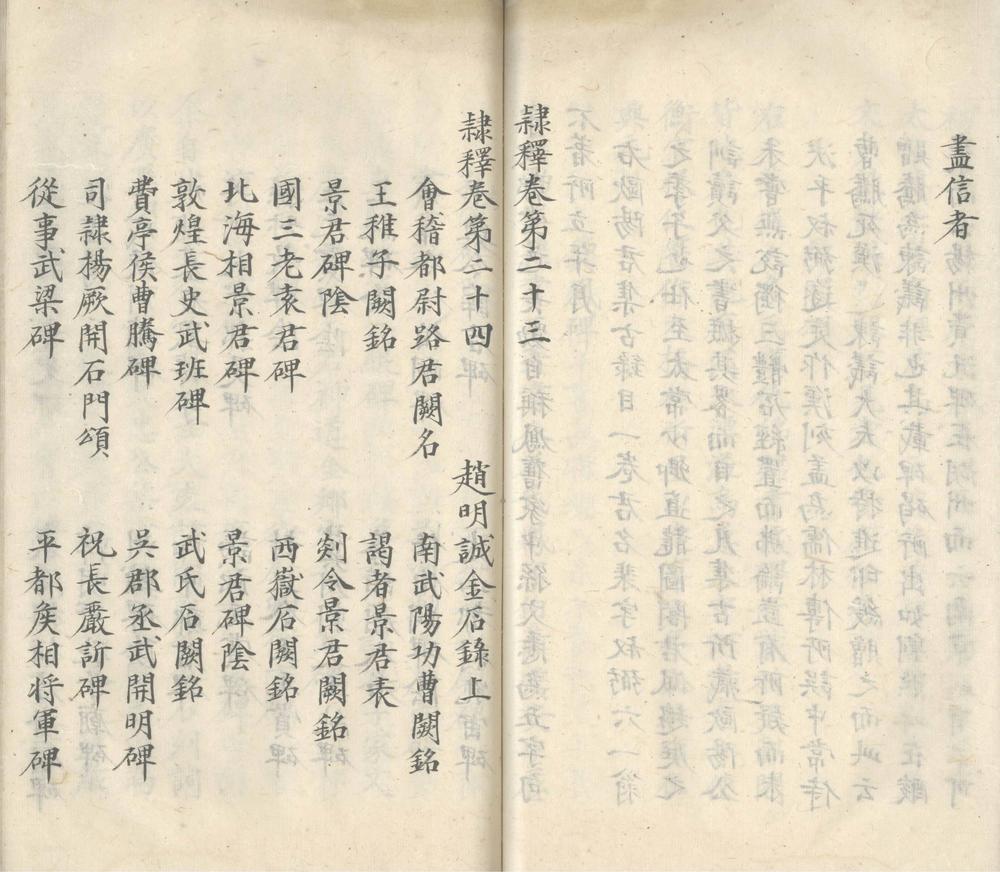 盡信者
隷釋卷第二十三
隷釋卷第二十四 趙明誠金石錄上
會稽都尉路君闕名 南武陽功曹闕銘
王稚子闕銘 謁者景君表
景君碑陰 剡令景君闕銘
國三老袁君碑 西嶽石闕銘
北海相景君碑 景君碑陰
敦煌長史武班碑 武氏石闕銘
費亭侯曹騰碑 吳郡丞武開明碑
司隷楊厥開石門頌 祝長嚴訢碑
從事武梁碑 平都矦相将軍碑